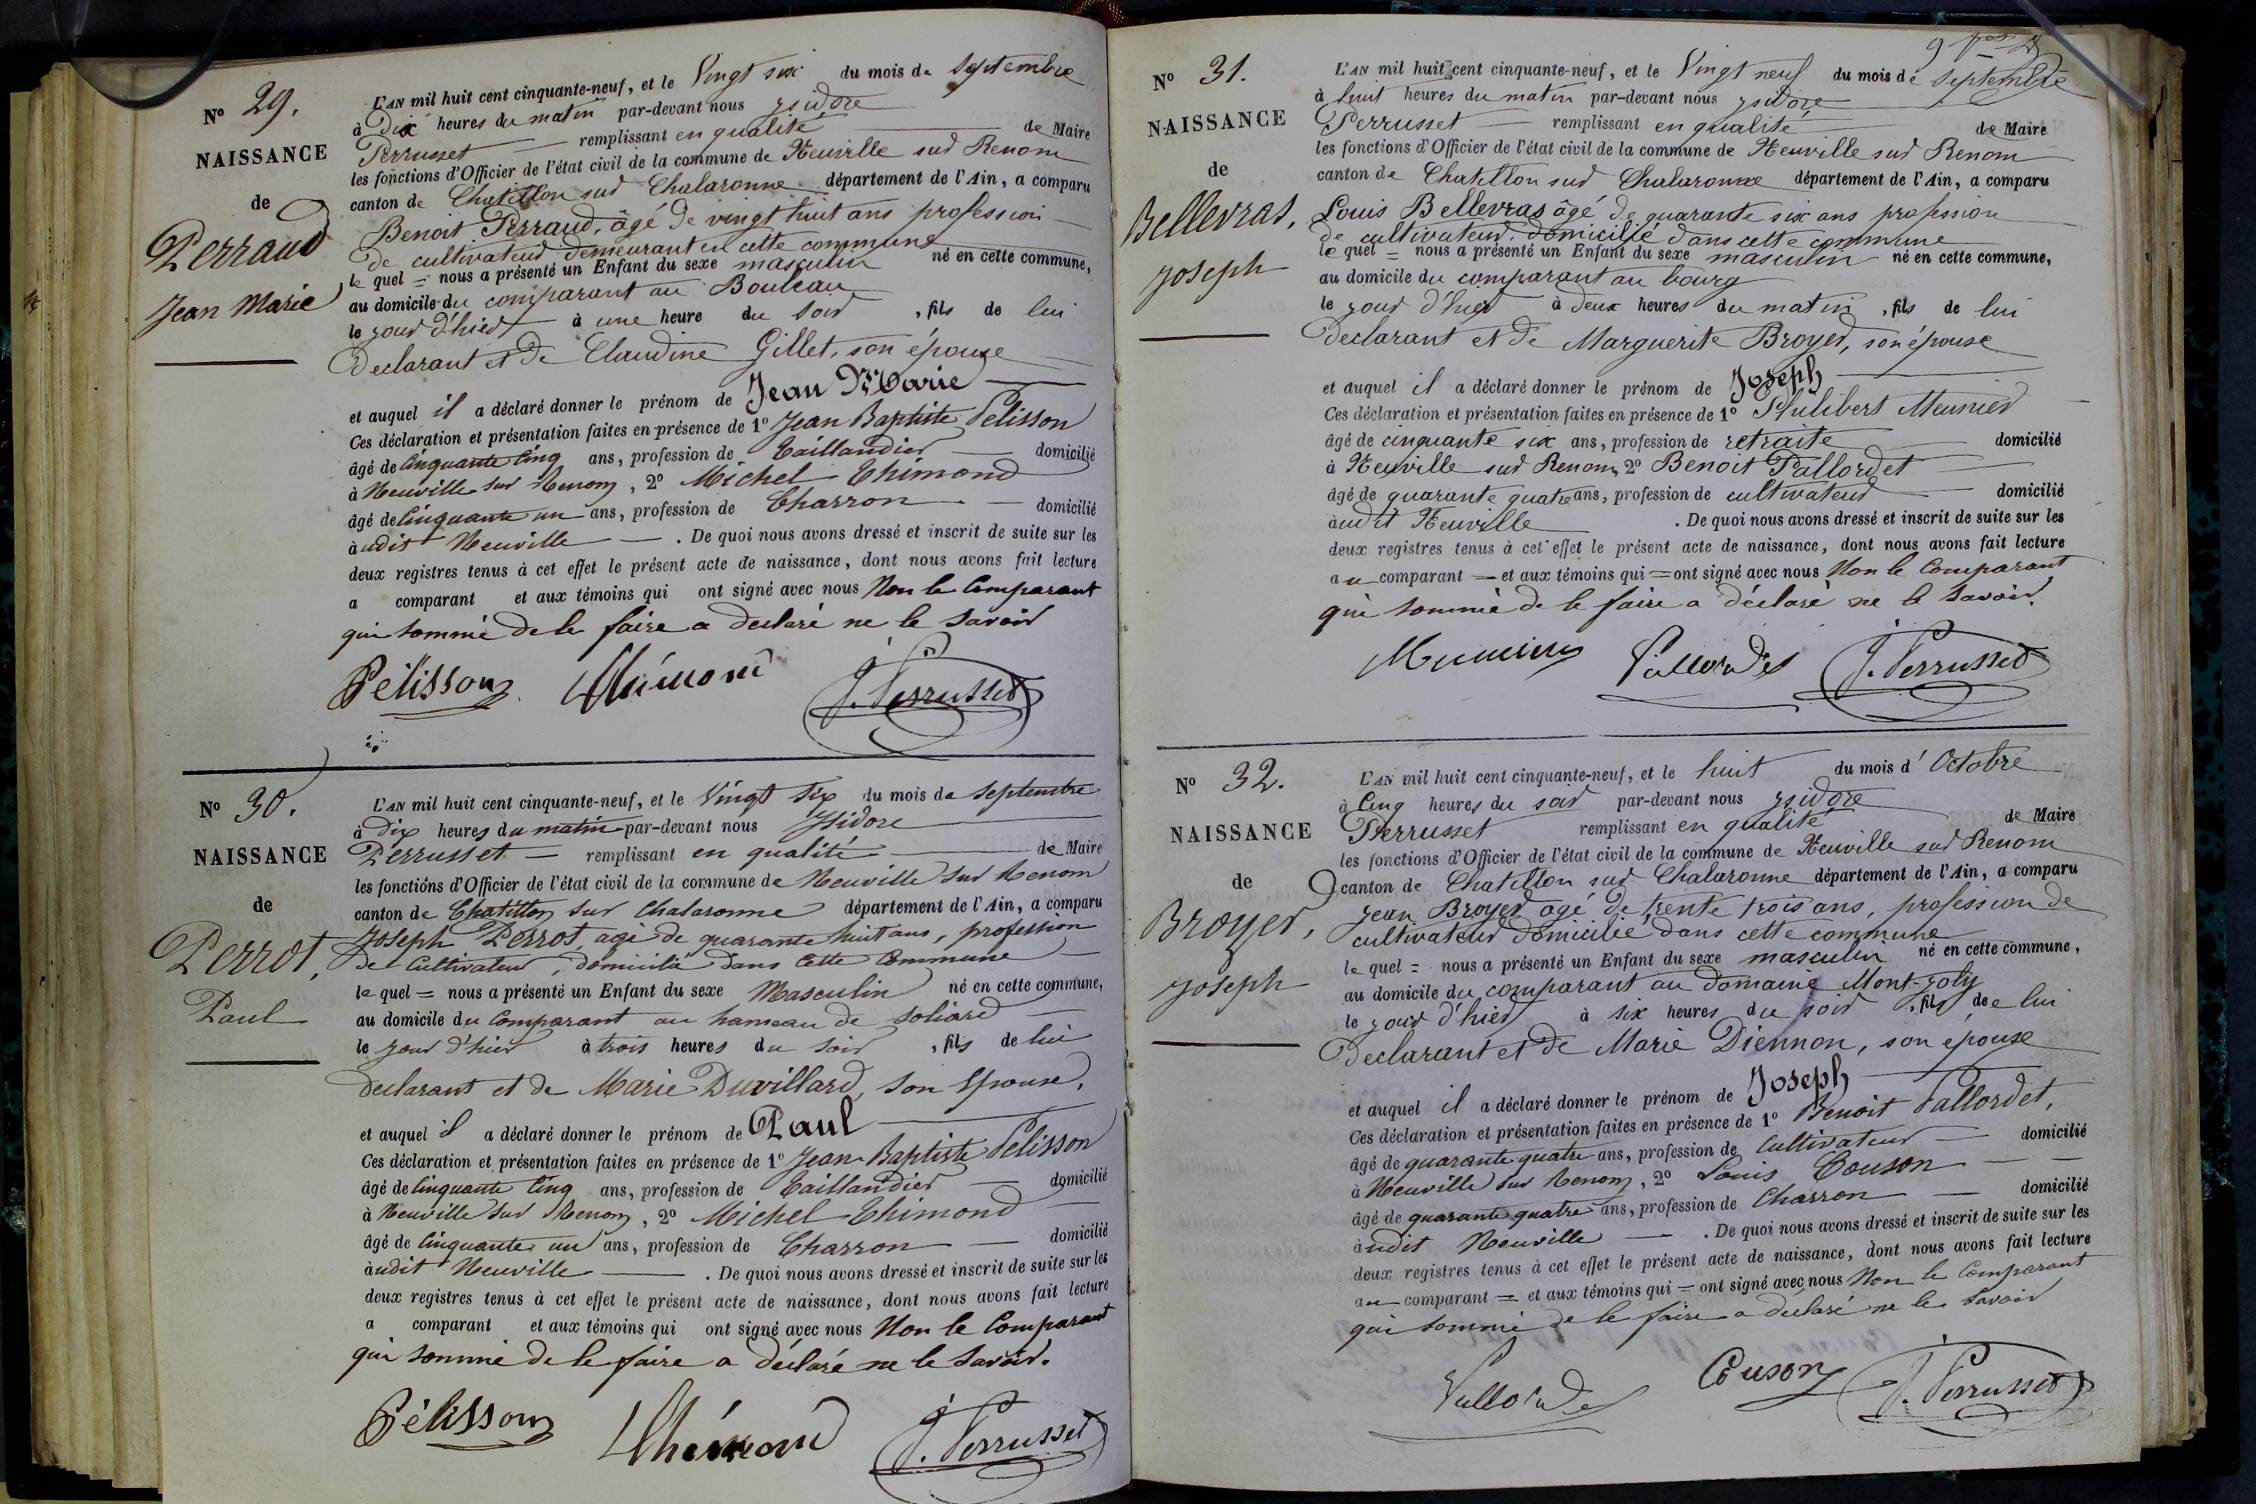 N° 29.
NAISSANCE
de
Perraud
Jean Marie
L'AN mil huit cent cinquante-neuf, et le Vingt six du mois de Septembre
à Dix heures du matin par-devant nous ysidore
Perrusset remplissant en qualité de Maire
les fonctions d'Officier de l'état civil de la commune de Neuville sur Renom
canton de Chatillon sur Chalaronne département de l'Ain, a comparu
Benoit Perraud, âgé de vingt huit ans profession
de cultivateur demeurant en cette commune
le quel = nous a présenté un Enfant du sexe masculin né en cette commune,
au domicile du comparant au Bouleau
le jour d'hier à une heure du soir, fils de lui
declarant et de Claudine Gillet, son épouse
et auquel il a déclaré donner le prénom de Jean Marie
Ces déclaration et présentation faites en présence de 1° Jean Baptiste Pelisson
âgé de Cinquante Cinq ans, profession de Taillandier domicilié
à Neuville sur Renom, 2° Michel Thimond
âgé de Cinquante un ans, profession de Charron domicilié
àudit Neuville. De quoi nous avons dressé et inscrit de suite sur les
deux registres tenus à cet effet le présent acte de naissance, dont nous avons fait lecture
a comparant et aux témoins qui ont signé avec nous Non le Comparant
qui sommé de le faire a declaré ne le savoir
Pélisson Thimond J. Perrusset
N° 30.
NAISSANCE
de
Perrot,
Paul
L'AN mil huit cent cinquante-neuf, et le Vingt Six du mois de Septembre
à dix heures du matin par-devant nous Ysidore
Perrusset remplissant en qualité de Maire
les fonctions d'Officier de l'état civil de la commune de Neuville sur Renom
canton de Chatillon sur Chalaronne département de l'Ain, a comparu
Joseph Perrot, agé de quarante huit ans, profession
de Cultivateur, domicilié dans Cette Commune
le quel = nous a présenté un Enfant du sexe Masculin né en cette commune,
au domicile du Comparant au hameau de Soliard
le jour d'hier à trois heures du soir, fils de lui
declarant et de Marie Duvillard, son Epouse,
et auquel il a déclaré donner le prénom de Paul
Ces déclaration et présentation faites en présence de 1° Jean-Baptiste Pelisson
âgé de Cinquante Cinq ans, profession de Taillandier domicilié
à Neuville sur Renom, 2° Michel Thimond
âgé de Cinquante un ans, profession de Charron domicilié
àudit Neuville. De quoi nous avons dressé et inscrit de suite sur les
deux registres tenus à cet effet le présent acte de naissance, dont nous avons fait lecture
a comparant et aux témoins qui ont signé avec nous Non le Comparant
qui sommé de le faire a déclaré ne le savoir.
Pélisson Thimond J. Perrusset
N° 31.
NAISSANCE
de
Bellevras,
Joseph
L'AN mil huit cent cinquante-neuf, et le Vingt neuf du mois de Septembre
à huit heures du matin par-devant nous ysidore
Perrusset remplissant en qualité de Maire
les fonctions d'Officier de l'état civil de la commune de Neuville sur Renom
canton de Chatillon sur Chalaronne département de l'Ain, a comparu
Louis Bellevras âgé de quarante six ans profession
de cultivateur domicilié dans cette commune
le quel = nous a présenté un Enfant du sexe masculin né en cette commune,
au domicile du comparant au bourg
le jour d'hier à deux heures du matin, fils de lui
declarant et de Marguerite Broyer, son épouse
et auquel il a déclaré donner le prénom de Joseph
Ces déclaration et présentation faites en présence de 1° Philibert Meunier
âgé de cinquante six ans, profession de retraite domicilié
à Neuville sur Renom, 2° Benoit Pallordet
âgé de quarante quatre ans, profession de cultivateur domicilié
àudit Neuville. De quoi nous avons dressé et inscrit de suite sur les
deux registres tenus à cet effet le présent acte de naissance, dont nous avons fait lecture
au comparant = et aux témoins qui = ont signé avec nous Non le Comparant
qui sommé de le faire a déclaré ne le savoir.
Meunier Pallordet J. Perrusset
N° 32.
NAISSANCE
de
Broyer,
Joseph
L'AN mil huit cent cinquante-neuf, et le huit du mois d'Octobre
à Cinq heures du soir par-devant nous ysidore
Perrusset remplissant en qualité de Maire
les fonctions d'Officier de l'état civil de la commune de Neuville sur Renom
canton de Chatillon sur Chalaronne département de l'Ain, a comparu
Jean Broyer âgé de trente trois ans, profession de
cultivateur domicilié dans cette commune
le quel = nous a présenté un Enfant du sexe masculin né en cette commune,
au domicile du comparant au domaine Mont-joly
le jour d'hier à six heures du soir, fils de lui
declarant et de Marie Diennon, son épouse
et auquel il a déclaré donner le prénom de Joseph
Ces déclaration et présentation faites en présence de 1° Benoit Pallordet,
âgé de quarante quatre ans, profession de Cultivateur domicilié
à Neuville sur Renom, 2° Louis Couson
âgé de quarante quatre ans, profession de Charron domicilié
àudit Neuville. De quoi nous avons dressé et inscrit de suite sur les
deux registres tenus à cet effet le présent acte de naissance, dont nous avons fait lecture
au comparant = et aux témoins qui = ont signé avec nous Non le Comparant
qui sommé de le faire a déclaré ne le savoir
Pallordet Couson J. Perrusset